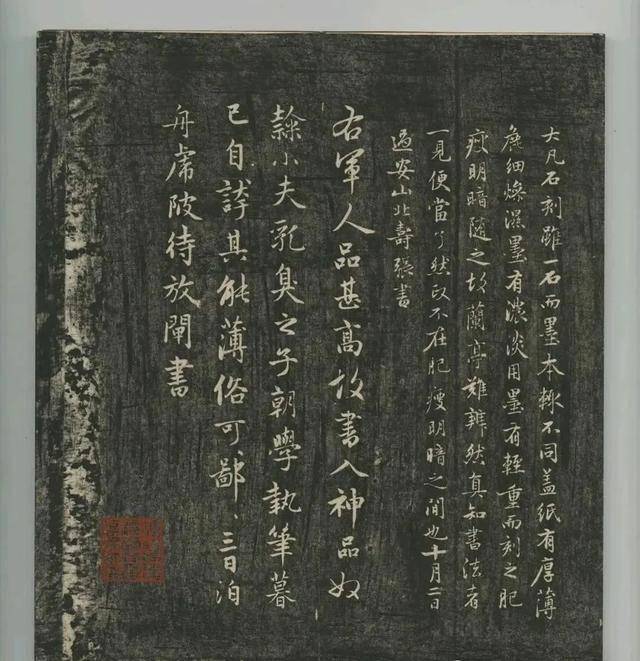 大凡石刻雖一石而墨本輙不同盖紙有厚薄
麁細燥濕墨有濃淡用墨有輕重而刻之肥
瘦明暗随之故蘭亭難辨然真知書法者
一見便當了然政不在肥瘦明暗之間也十月二日
過安山北壽張書
右軍人品甚高故書入神品奴
隸小夫乳臭之子朝學執筆暮
已自誇其能薄俗可鄙、三日泊
舟虎陂待放閘書